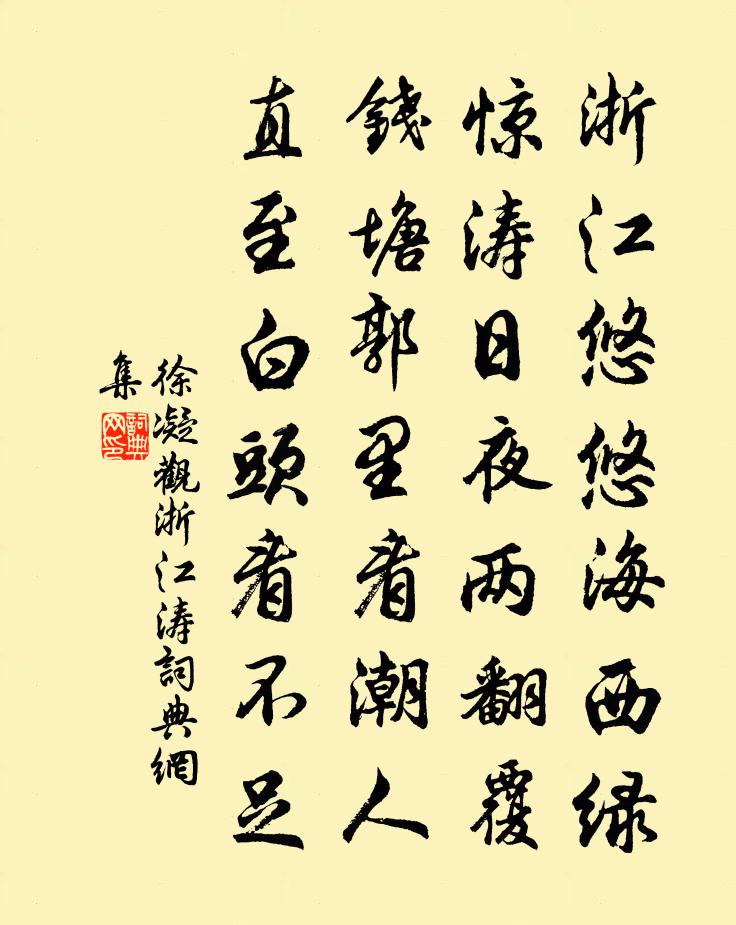 浙江悠悠海西绿
惊涛日夜两翻覆
錢塘郭里看潮人
直至白頭看不足
徐凝觀浙江涛詞典網
集
詞典
网印